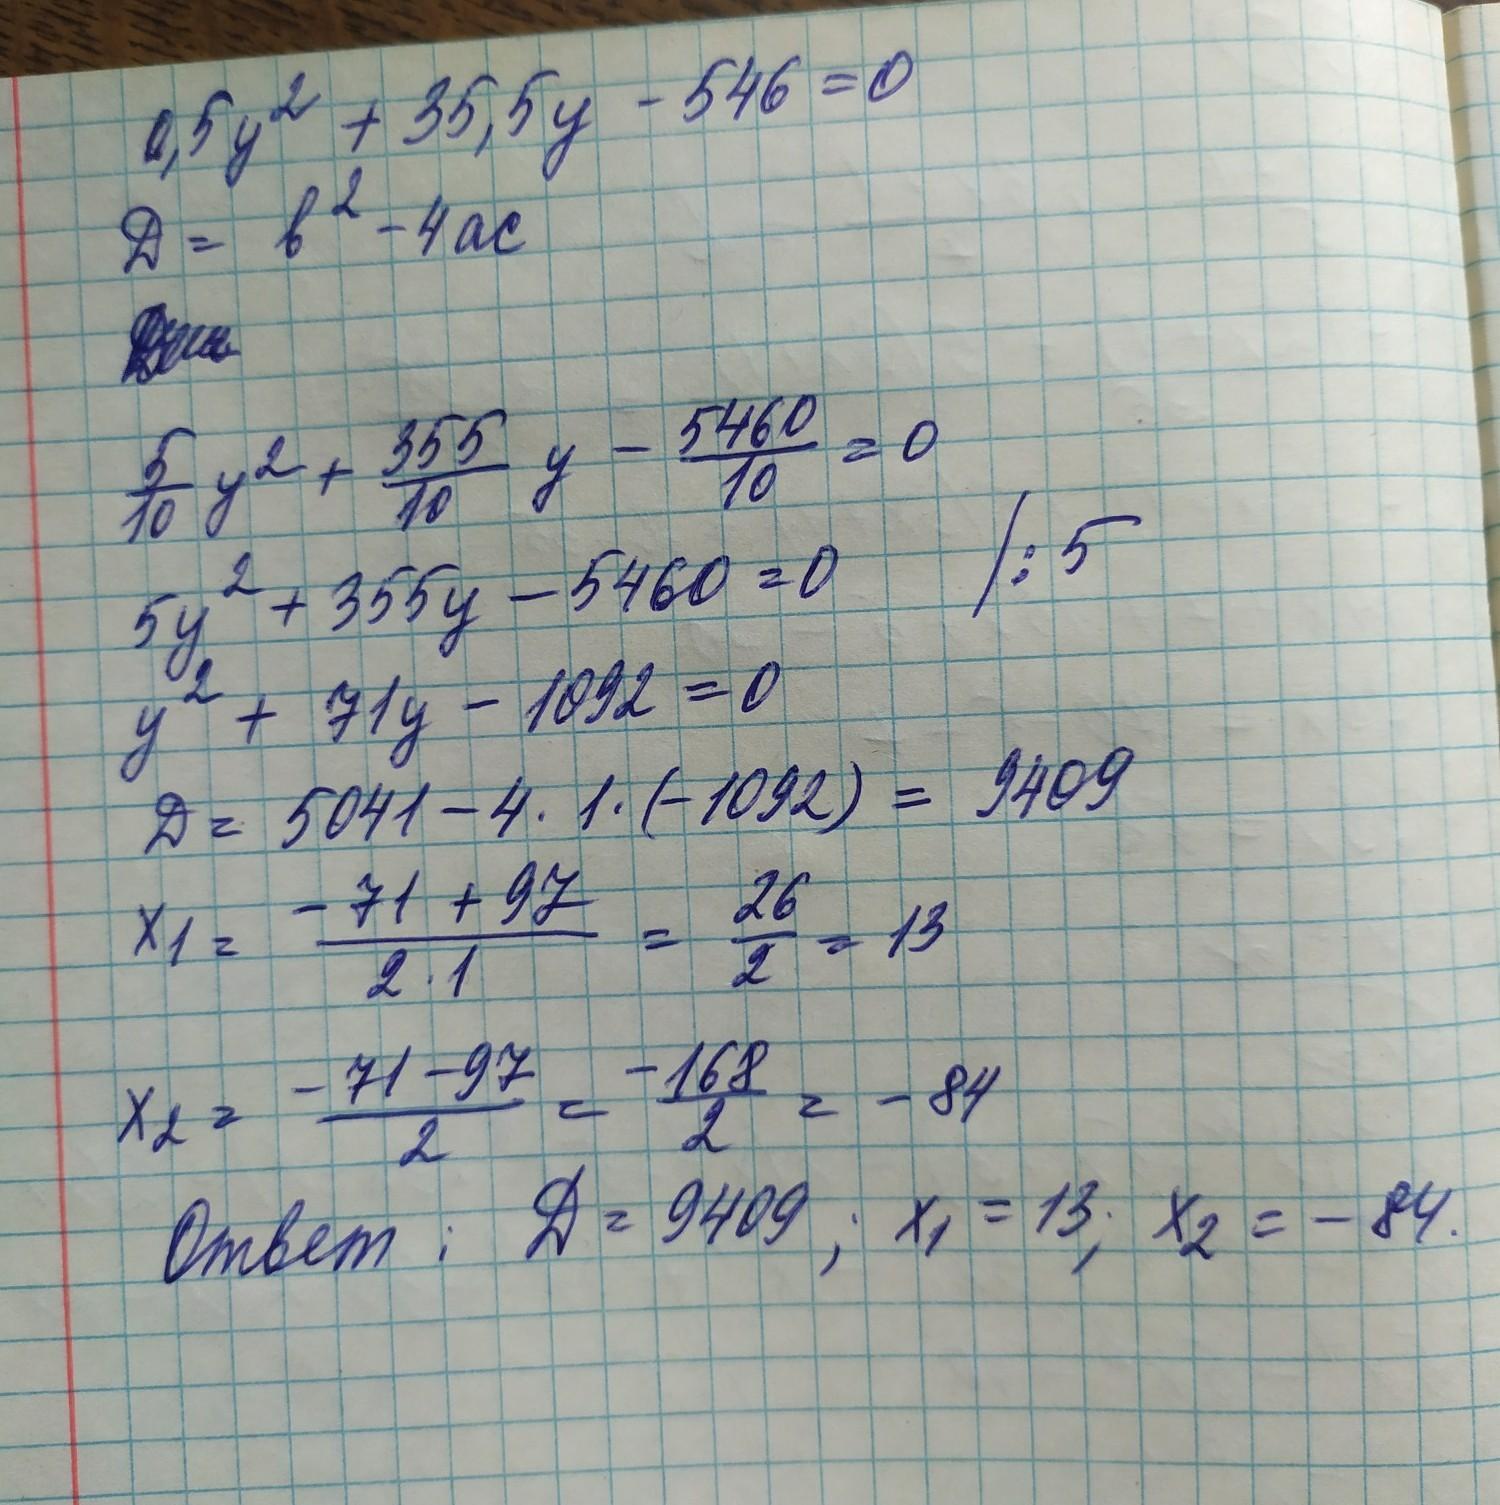 0,5y² + 35,5y - 546 = 0
D = b² - 4ac
5/10 y² + 355/10 y - 5460/10 = 0
5y² + 355y - 5460 = 0 /:5
y² + 71y - 1092 = 0
D = 5041 - 4 · 1 · (-1092) = 9409
x₁ = (-71 + 97)/(2 · 1) = 26/2 = 13
x₂ = (-71 - 97)/2 = -168/2 = -84
Ответ: D = 9409; x₁ = 13; x₂ = -84.